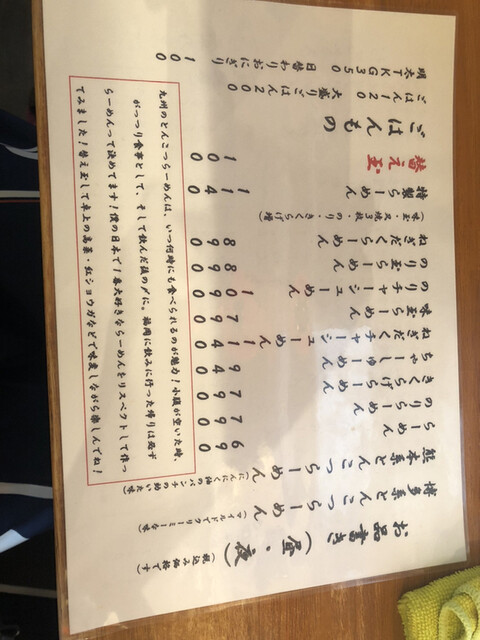 お品書き（昼・夜）（税込み価格です）
博多系とんこつらーめん（マイルドでクリーミーな味）
熊本系とんこつらーめん（にんにく油のパンチの効いた味）
らーめん 690
のりらーめん 790
きくらげらーめん 790
ちゃーしゅーめん 940
ねぎだくチャーシューめん 1140
味玉らーめん 790
のりチャーシューめん 1090
のり玉らーめん 890
ねぎだくらーめん 890
（味玉・叉焼3枚・のり・きくらげ増）
特製らーめん 1140
替え玉 100
ごはんもの
ごはん120 大盛りごはん200
明太TKG350 日替わりおにぎり100
九州のとんこつらーめんは、いつ何時にも食べられるのが魅力！小腹が空いた時、
がっつり食事として、そして飲んだ後の〆に。福岡に飲みに行った帰りは必ず
らーめんって決めてます！僕の日本で1番大好きならーめんをリスペクトして作っ
てみました！替え玉して卓上の高菜・紅ショウガなどで味変しながら楽しんでね！